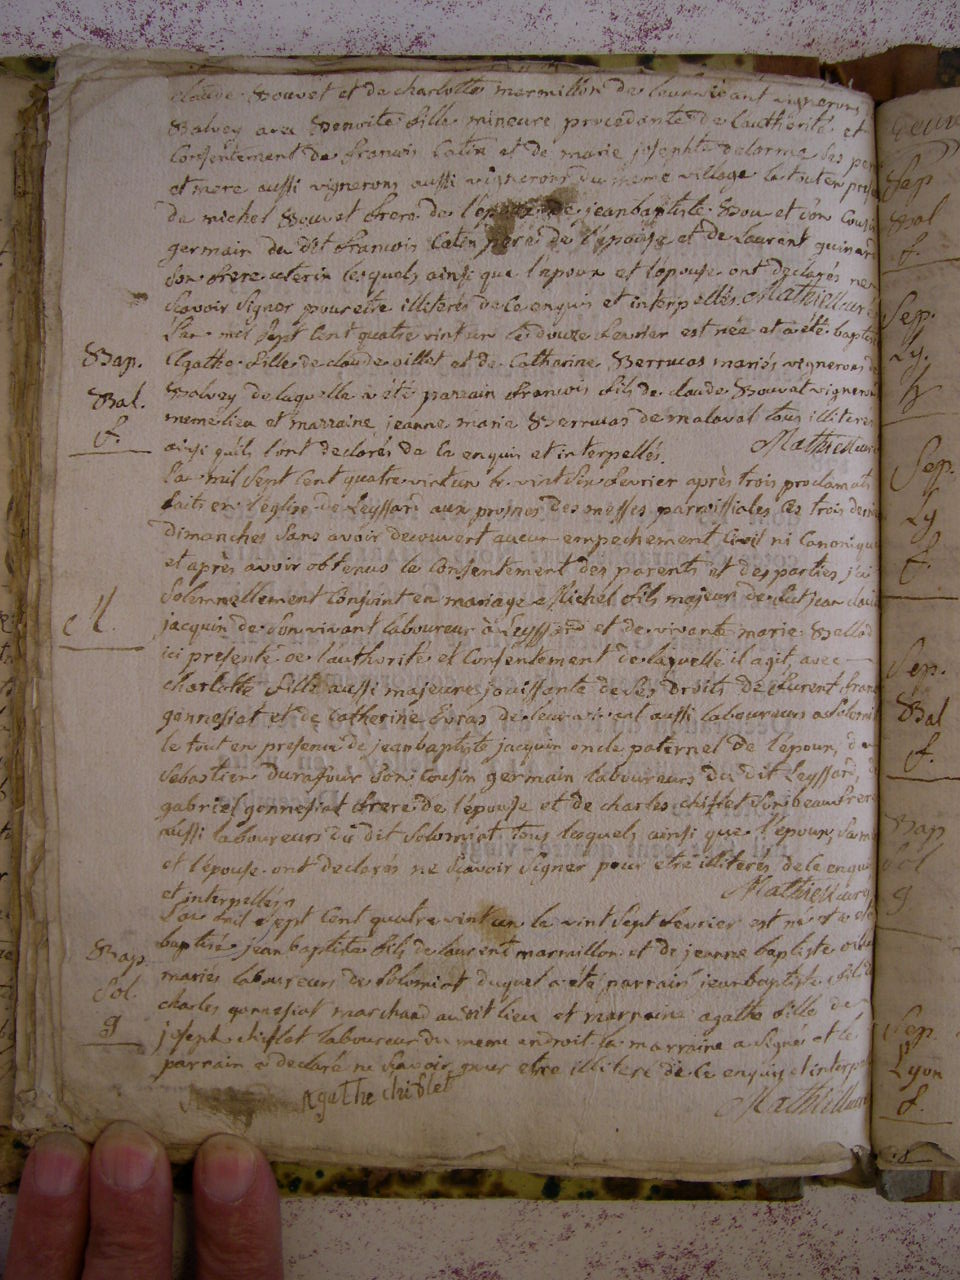 claude Bouvet et de charlotte marmillon de leur vivant vignerons
Balvey avec Benoite fille mineure procedante de l'authorité et
Consentement de francois Catin et de marie josephte delorme Ses per
et mere aussi vignerons aussi vignerons du meme village le tout en prese
de michel Bouvet frere de l'epoux de jeanbaptiste Bouvet son Cousin
germain du dit francois Catin pere de l'epouse et de Laurent guinard
Son frere uterin lesquels ainsi que l'epoux et l'epouse ont declarés ne
Scavoir Signer pour etre illiterés de ce enquis et interpellés. Mathieu curé
L'an mil Sept Cent quatre vint un le douze fevrier est née et a été baptis
Bap. Agathe fille de claude villet et de Catharine Berrucas mariés vignerons d
Bal. Balvey de laquelle a été parrain francois fils de claude Bouvet vigneron
f. meme lieu et marraine jeanne marie Berrucas de malaval tous illiterés
ainsi qu'ils l'ont declarés de ce enquis et interpellés. Mathieu curé
L'an mil Sept Cent quatre vint un le vint Six fevrier après trois proclamati
faits en l'église de Leyssard aux prosnes des messes parroissiales les trois der
dimanches Sans avoir decouvert aucun empechement Civil ni Canonique
et apres avoir obtenus le Consentement des parents et des parties j'ai
M. Solemnellement Conjoint en mariage Michel fils majeur de fut jean clau
jacquin de Son vivant laboureur à Leyssard et de vivante marie Bellod
ici presente de l'authorité et Consentement de laquelle il agit, avec
charlotte fille aussi majeure jouissante de Ses droits de Laurent franc
gonnesiat et de Catherine Evras de leur vivant aussi laboureurs a Solomiat
le tout en presence de jeanbaptiste jacquin oncle paternel de l'epoux, de
Sebastien durafour Son Cousin germain laboureurs du dit Leyssard, d
gabriel gonnesiat frere de l'epouse et de charles chiflet Son beau frere
aussi laboureurs du dit Solomiat tous lesquels ainsi que l'epoux, Sa m
et l'epouse ont declarés ne Scavoir Signer pour etre illiterés de ce enquis
et interpellés Mathieu curé
L'an mil Sept Cent quatre vint un le vint Sept fevrier est né et a été
Bap. baptisé jean baptiste fils de Laurent marmillon et de jeanne baptiste
Sol. mariés laboureurs de Solomiat duquel a été parrain jeanbaptiste fils d
g charles gonnesiat marchand au dit lieu et marraine agathe fille de
joseph chiflet laboureur du meme endroit la marraine a Signé et le
parrain a declaré ne Scavoir pour etre illiteré de ce enquis et interp
Agathe chiflet Mathieu curé
Sep
Bal
f.
Sep.
Ly.
Sep.
Ly
f.
Sep.
Bal
f.
Bap
Sol
g
Sep.
Lyon
f.